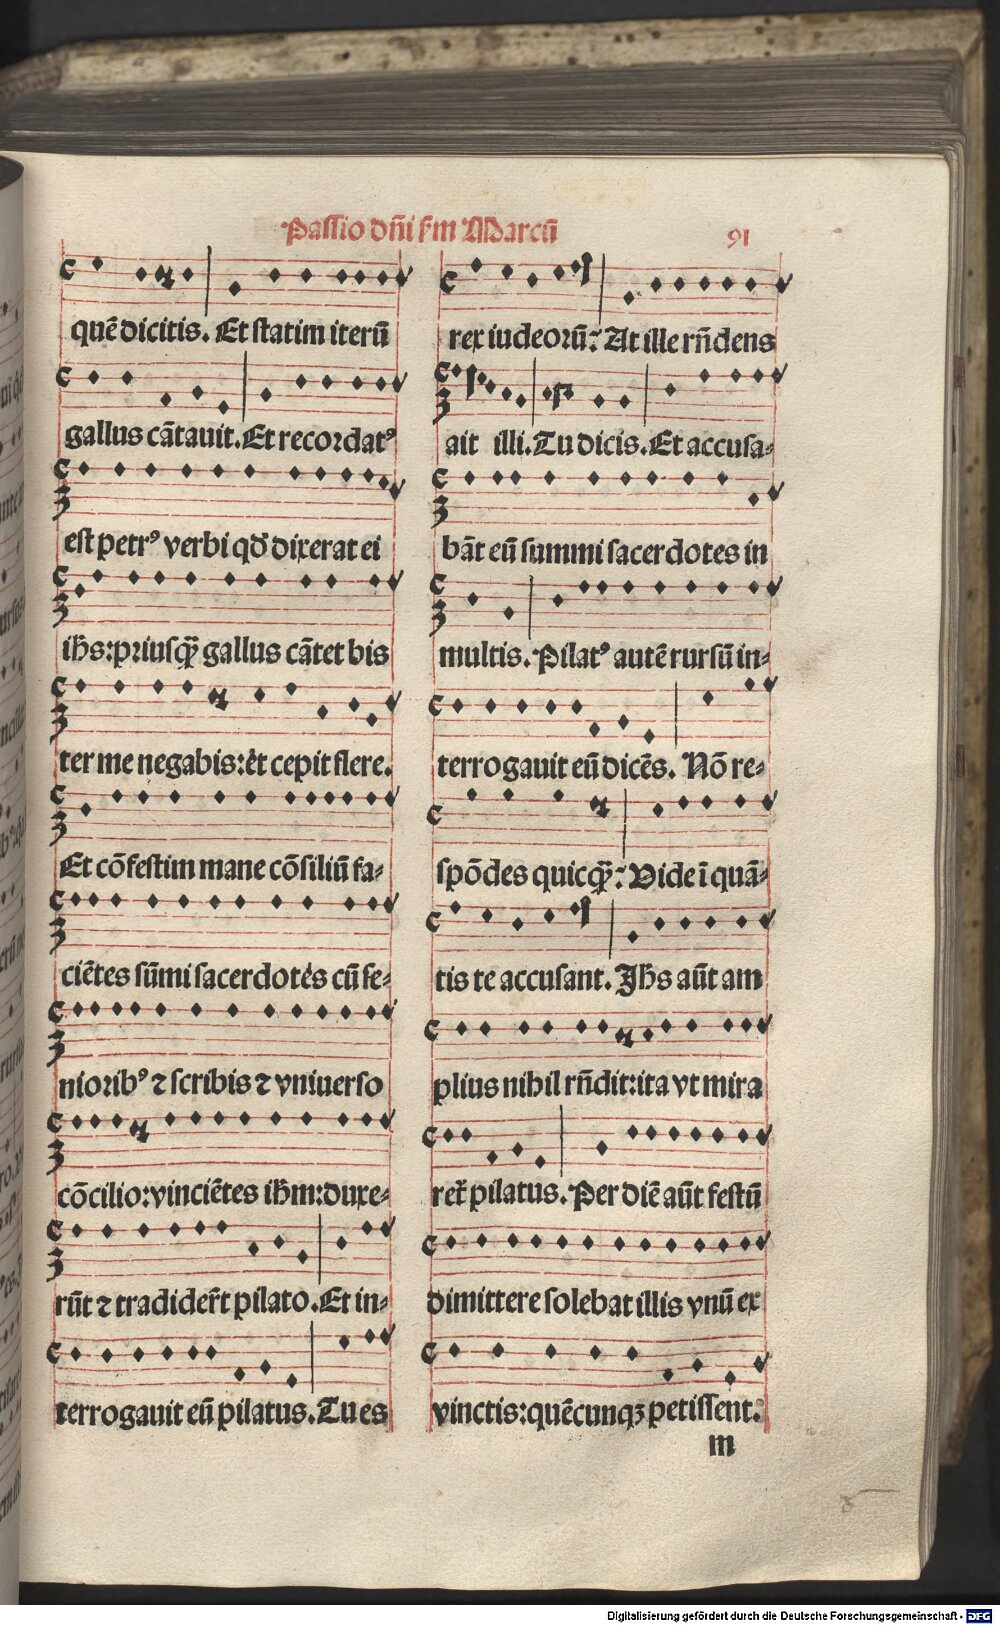 Passio dñi ẜm Marcũ
91
quẽ dicitis. Et statim iterũ
gallus cãtauit. Et recordatꝰ
est petrꝰ verbi qđ dixerat ei
ihs: priusq̃ gallus cãtet bis
ter me negabis: et cepit flere.
Et cõfestim mane cõsiliũ fa⸗
ciẽtes sũmi sacerdotes cũ se⸗
nioribꝰ ⁊ scribis ⁊ vniuerso
cõcilio: vinciẽtes ihm: duxe⸗
rũt ⁊ tradider̃t pilato. Et in⸗
terrogauit eũ pilatus. Tu es
rex iudeorũ? At ille rñdens
ait illi. Tu dicis. Et accusa⸗
bãt eũ summi sacerdotes in
multis. Pilatꝰ autẽ rursũ in⸗
terrogauit eũ dicẽs. Nõ re⸗
spõdes quicq̃? Vide ĩ quã⸗
tis te accusant. Jhs aũt am
plius nihil rñdit: ita vt mira
ret̃ pilatus. Per diẽ aũt festũ
dimittere solebat illis vnũ ex
vinctis: quẽcunqꝫ petissent.
m
Digitalisierung gefördert durch die Deutsche Forschungsgemeinschaft - DFG